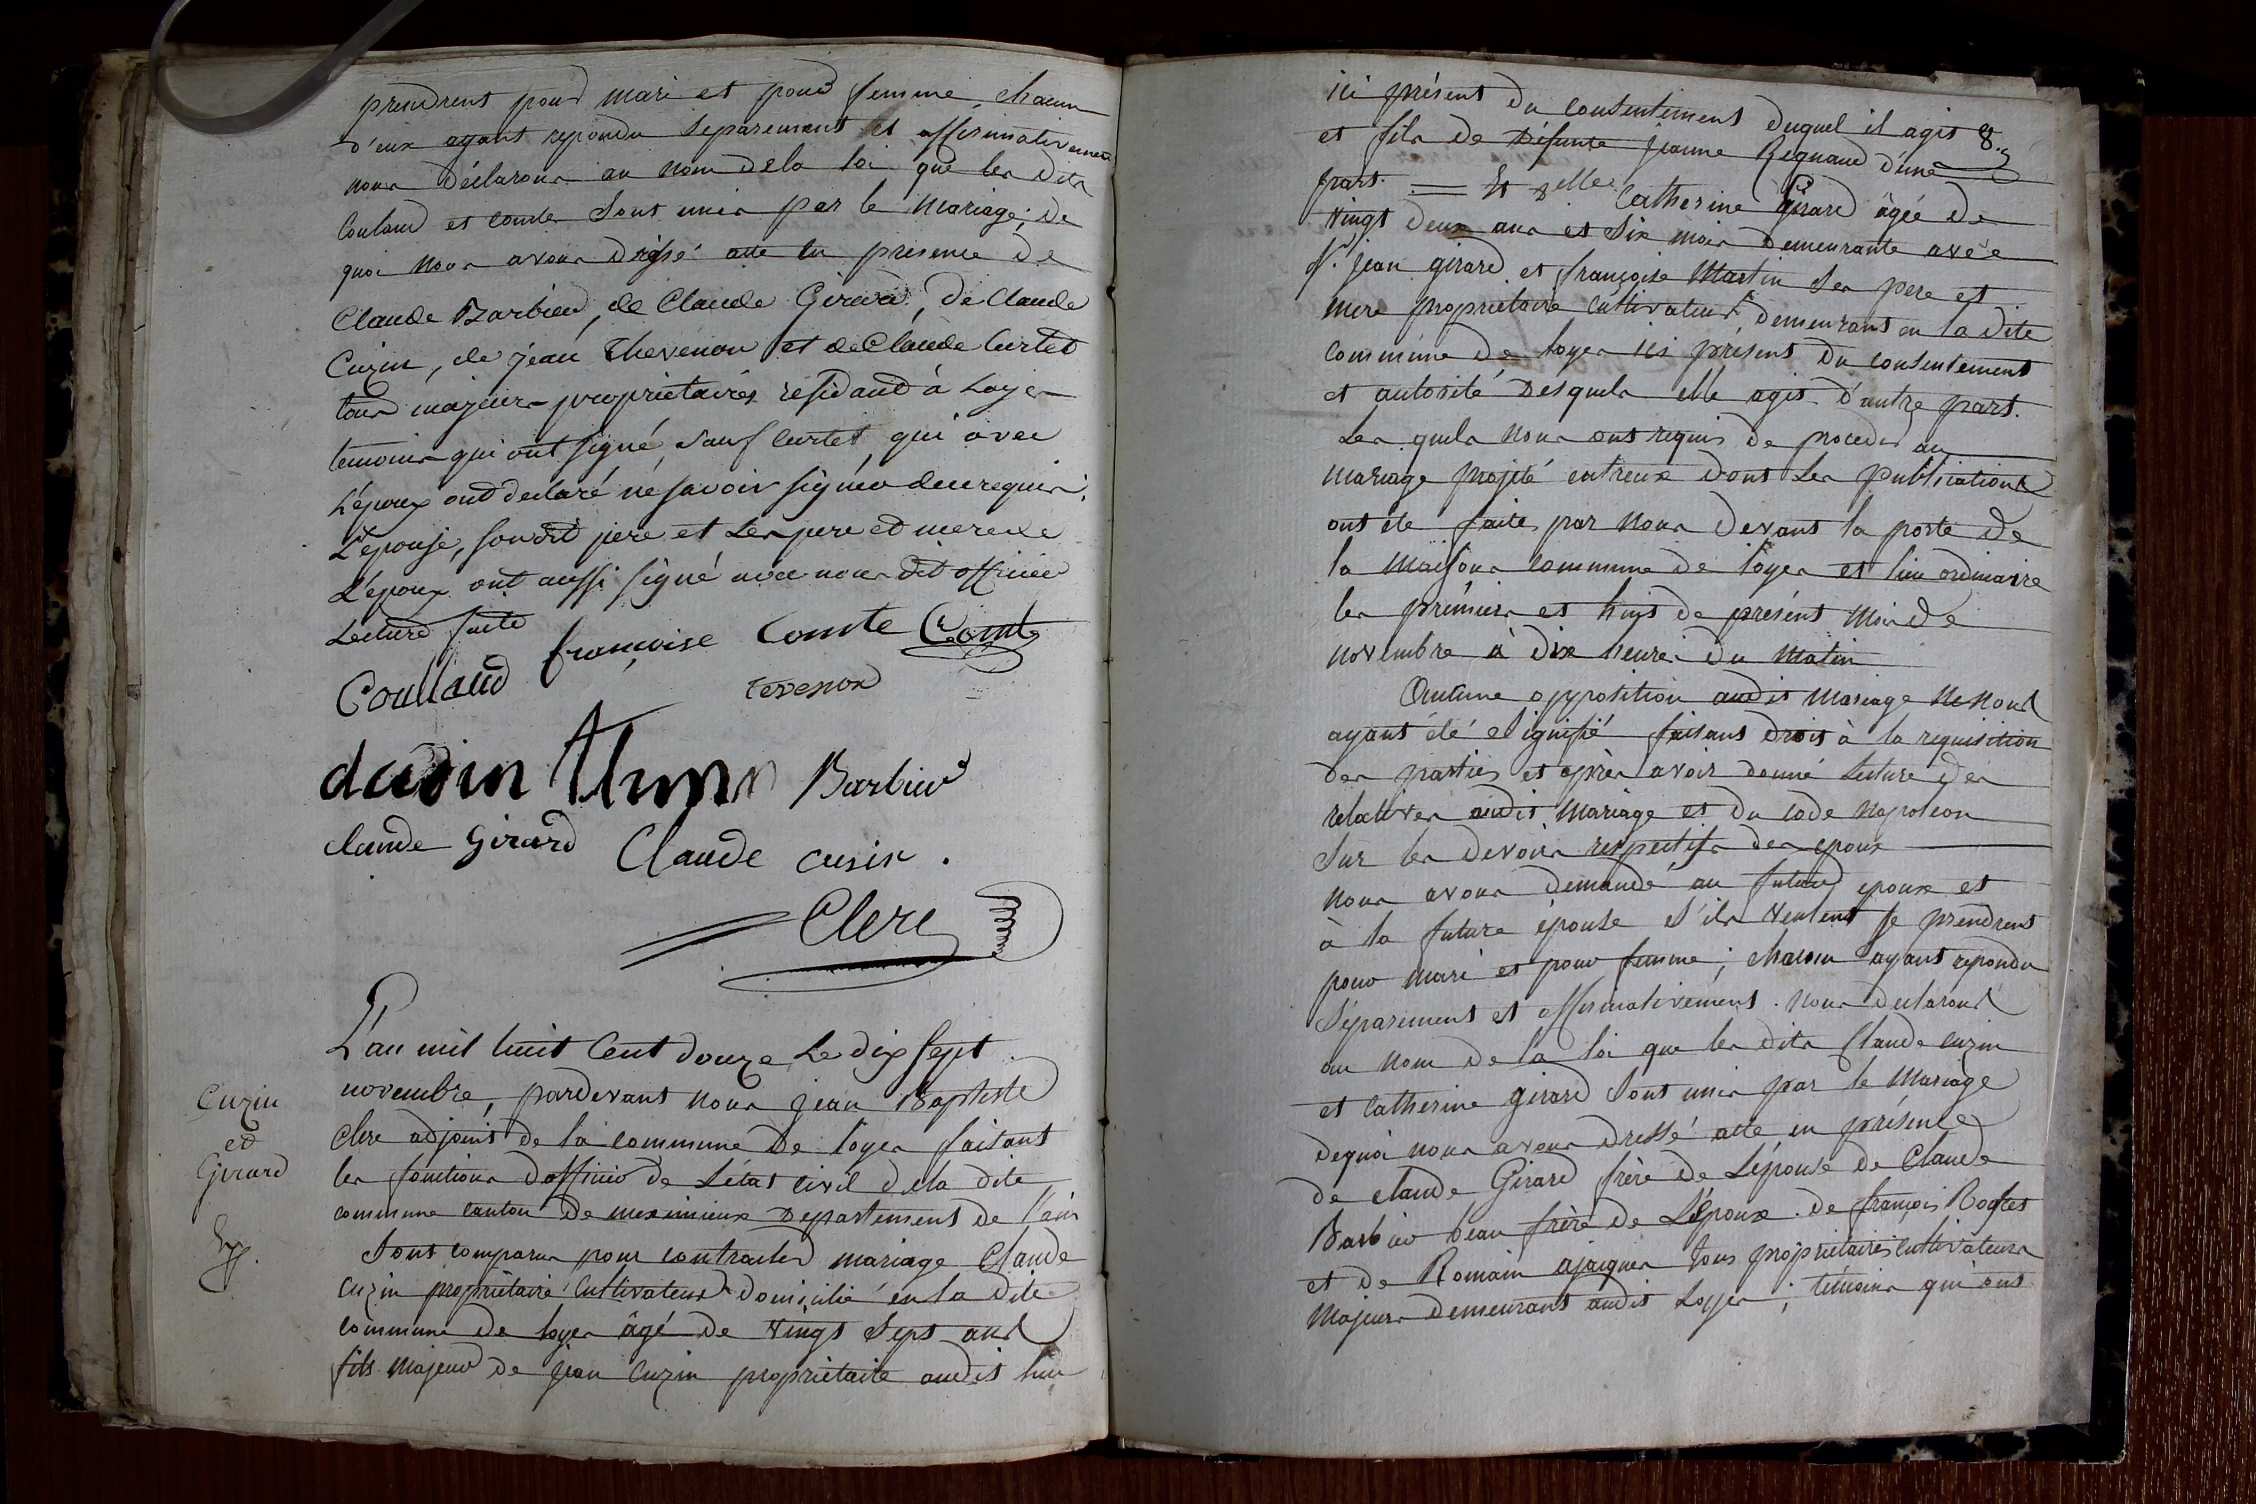 prendrent pour mari et pour femme, chacun
d'eux ayant repondu Separement et affirmativement
nous déclarons au nom dela loi que les dits
Coulaud et comte Sont unis par le Mariage; de
quoi nous avons dréssé acte en présence de
Claude Barbier, de Claude Girard, de Claude
Cuzin, de jean Thevenon et de Claude Curtet
tous majeurs propriétaires résidant à Loyes
temoins qui ont signé, sauf Curtet qui avec
L'époux ont declaré ne savoir signer de ce requis.
L'épouse, son dit pere et Les pere et mere de
L'époux ont aussi signé avec nous dit officier
Lecture faite
françoise Comte Comte
Coulland
tevenon
dadin
Barbier
claude Girard Claude cusin .
Clerc
Cuzin
et
Girard
L'an mil huit Cent douze Le dix sept
novembre, pardevant nous jean Baptiste
Clerc adjoint de la commune de loyes faisant
les fonctions d'officier de L'état civil dela dite
commune canton de meximieux Departement de l'ain
Sont comparus pour contracter mariage Claude
Cuzin propriétaire Cultivateur domicilié en la dite
commune de loyes âgé de Vingt Sept ans
fils majeur de jean Cuzin propriétaire audit lieu
8.
ici présent du consentement duquel il agit
et fils de Défunte jeanne Regnaud d'une
part. = Et Delle Catherine Girard âgée de
Vingt deux ans et Six mois Demeurante avec
Sr. jean girard et françoise Martin Ses pere et
mere propriétaire Cultivateurs, demeurant en la dite
commune de loyes ici présent du consentement
et autorité Desquels elle agit d'autre part.
Les quels nous ont requis de proceder au
mariage projeté entreux dont les publications
ont été faites par nous devant la porte de
la Maison commune de loyes et lieu ordinaire
les premiers et huit de présent mois de
novembre à dix heures du Matin
Aucune opposition audit mariage Ne nous
ayant été Signifié faisant droit à la requisition
des parties et après avoir donné lecture des
relatives audit Mariage et du code Napoléon
Sur les devoirs respectifs des epoux
nous avons demandé au futur epoux et
à la future épouse S'ils veulent se prendrent
pour mari et pour femme; chacun ayant repondu
Séparement et affirmativement. nous declarons
au nom de la loi que les dits Claude Cuzin
et Catherine girard Sont unis par le Mariage
dequoi nous avons dressé acte en présence
de claude Girard frère de L'épouse de Claude
Barbier beau frère de L'époux. de françois
et de Romain ajacques tous propriétaires Cultivateurs
Majeurs demeurant audit Loyes; témoins qui ont